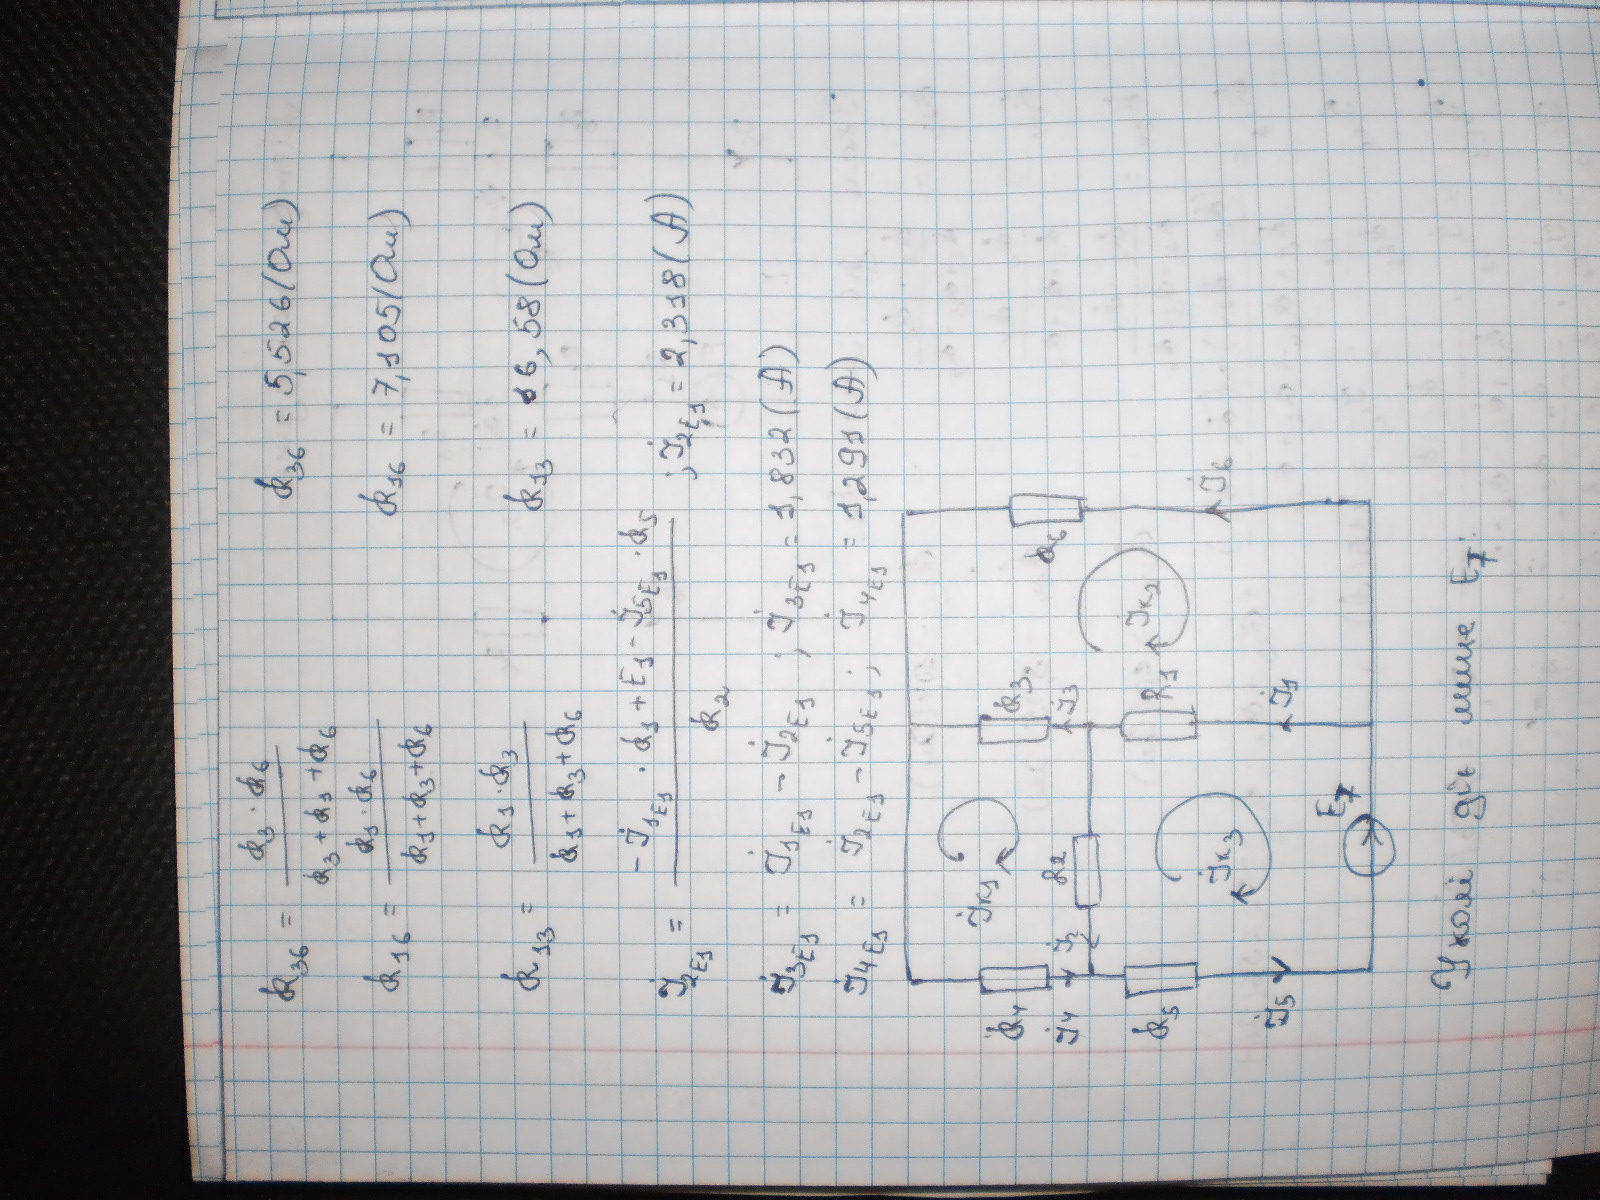 R₃₆ = R₃·R₆ / R₃+R₁+R₆    R₃₆ = 5,526 (Ом)
R₁₆ = R₁·R₆ / R₁+R₃+R₆    R₁₆ = 7,105 (Ом)
R₁₃ = R₁·R₃ / R₁+R₃+R₆    R₁₃ = 6,58 (Ом)
İ₂E₁ = -İ₁E₁·R₁+E₁-İ₅E₁·R₅ / R₂ ; İ₂E₁ = 2,318 (А)
İ₃E₁ = İ₁E₁ - İ₂E₁ ; İ₃E₁ = 1,832 (А)
İ₄E₁ = İ₂E₁ - İ₅E₁ ; İ₄E₁ = 1,291 (А)
R₄ İ₄ İк₁ R₃ İ₃ R₆
R₂ İ₂ İк₂
R₅ İк₃ R₁ İ₆
İ₅ İ₁
E₇
У колі діє лише E₇: